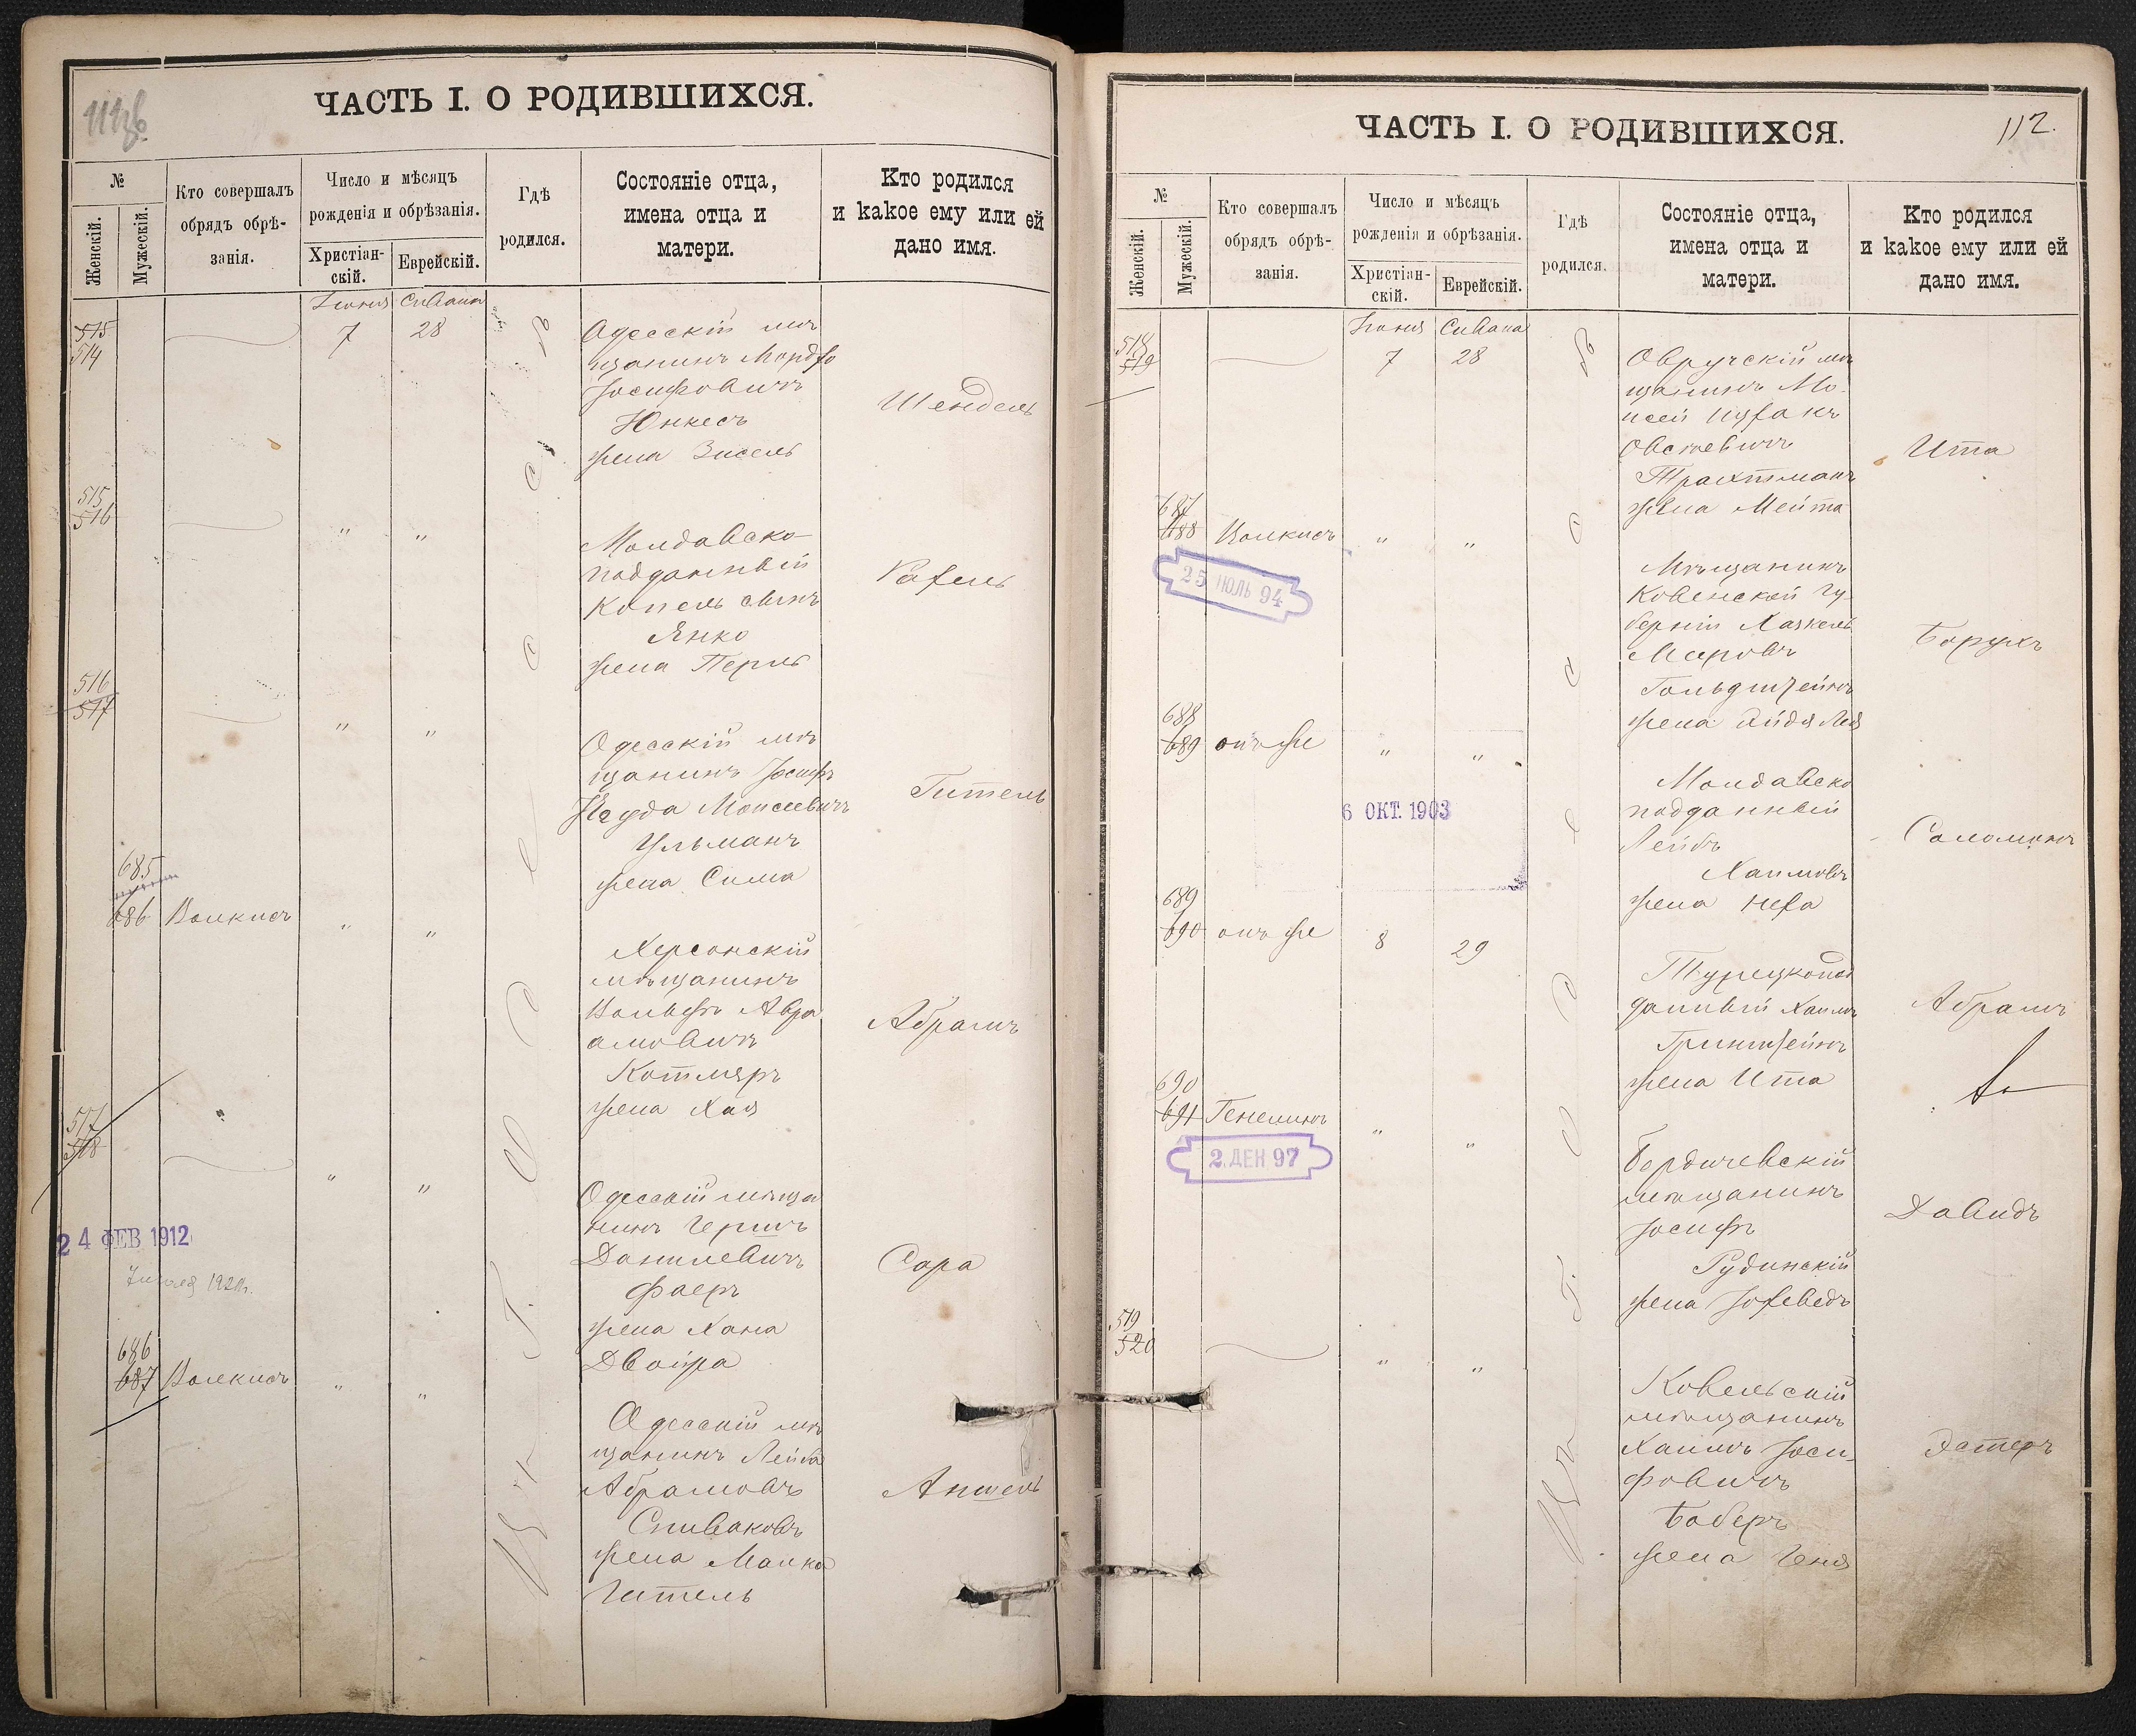 ЧАСТЬ I. О РОДИВШИХСЯ.
№
Женскій.
Мужескій.
Кто совершалъ
обрядъ обрѣ-
занія.
Число и мѣсяцъ
рожденія и обрѣзанія.
Христіан-
скій.
Еврейскій.
Гдѣ
родился.
Состояніе отца,
имена отца и
матери.
Кто родился
и какое ему или ей
дано имя.
Іюня Сивана
515
514
7 28
Одесскій мѣ
щанинъ
Іосифовичъ
Юнкесъ
жена Зисель
Шендель
515
516
" "
Молдавско
подданный
Копель сынъ
Янко
жена Перль
Рахель
516
517
" "
Одесскій мѣ
щанинъ Іосифъ
Моисеевичъ
Ульманъ
жена Сима
Гитель
685
686 Волкисъ " "
Херсонскій
мѣщанинъ
Вольфъ Авра
амовичъ
Котляръ
жена Хая
Абрамъ
517
518
" "
Одесскій мѣща
нинъ Гершъ
Данилевичъ
Фаеръ
жена Хана
Двойра
Сара
24 ФЕВ 1912
686
687 Волкисъ " "
Одесскій мѣ
щанинъ Лейба
Абрамовъ
Спиваковъ
жена Малка
Гитель
Аншель
въ г. Одессѣ
112.
ЧАСТЬ I. О РОДИВШИХСЯ.
№
Женскій.
Мужескій.
Кто совершалъ
обрядъ обрѣ-
занія.
Число и мѣсяцъ
рожденія и обрѣзанія.
Христіан-
скій.
Еврейскій.
Гдѣ
родился.
Состояніе отца,
имена отца и
матери.
Кто родился
и какое ему или ей
дано имя.
Іюня Сивана
518
519
7 28
Овручскій мѣ
щанинъ Мо-
исей Ицхакъ
Овсеевичъ
Трахтманъ
жена Мейта
Ита
687
688 Волкисъ " "
25 ІЮЛЬ 94
Мѣщанинъ
Ковенской гу-
берніи Хаскель
Мееровъ
Гольдштейнъ
жена Лея
Борухъ
688
689 онъ же " "
6 ОКТ. 1903
Молдавско
подданный
Лейбъ
Хаимовъ
жена Неха
Соломонъ
689
690 онъ же 8 29
Турецкопод
данный Хаимъ
Гринштейнъ
жена Ита
Абрамъ
690
691 " "
2. ДЕК 97
Бердичевскій
мѣщанинъ
Іосифъ
Рудинскій
жена Іохеведъ
Давидъ
519
520
" "
Ковельскій
мѣщанинъ
Хаимъ Іоси-
фовичъ
Боберъ
жена Геня
Эстеръ